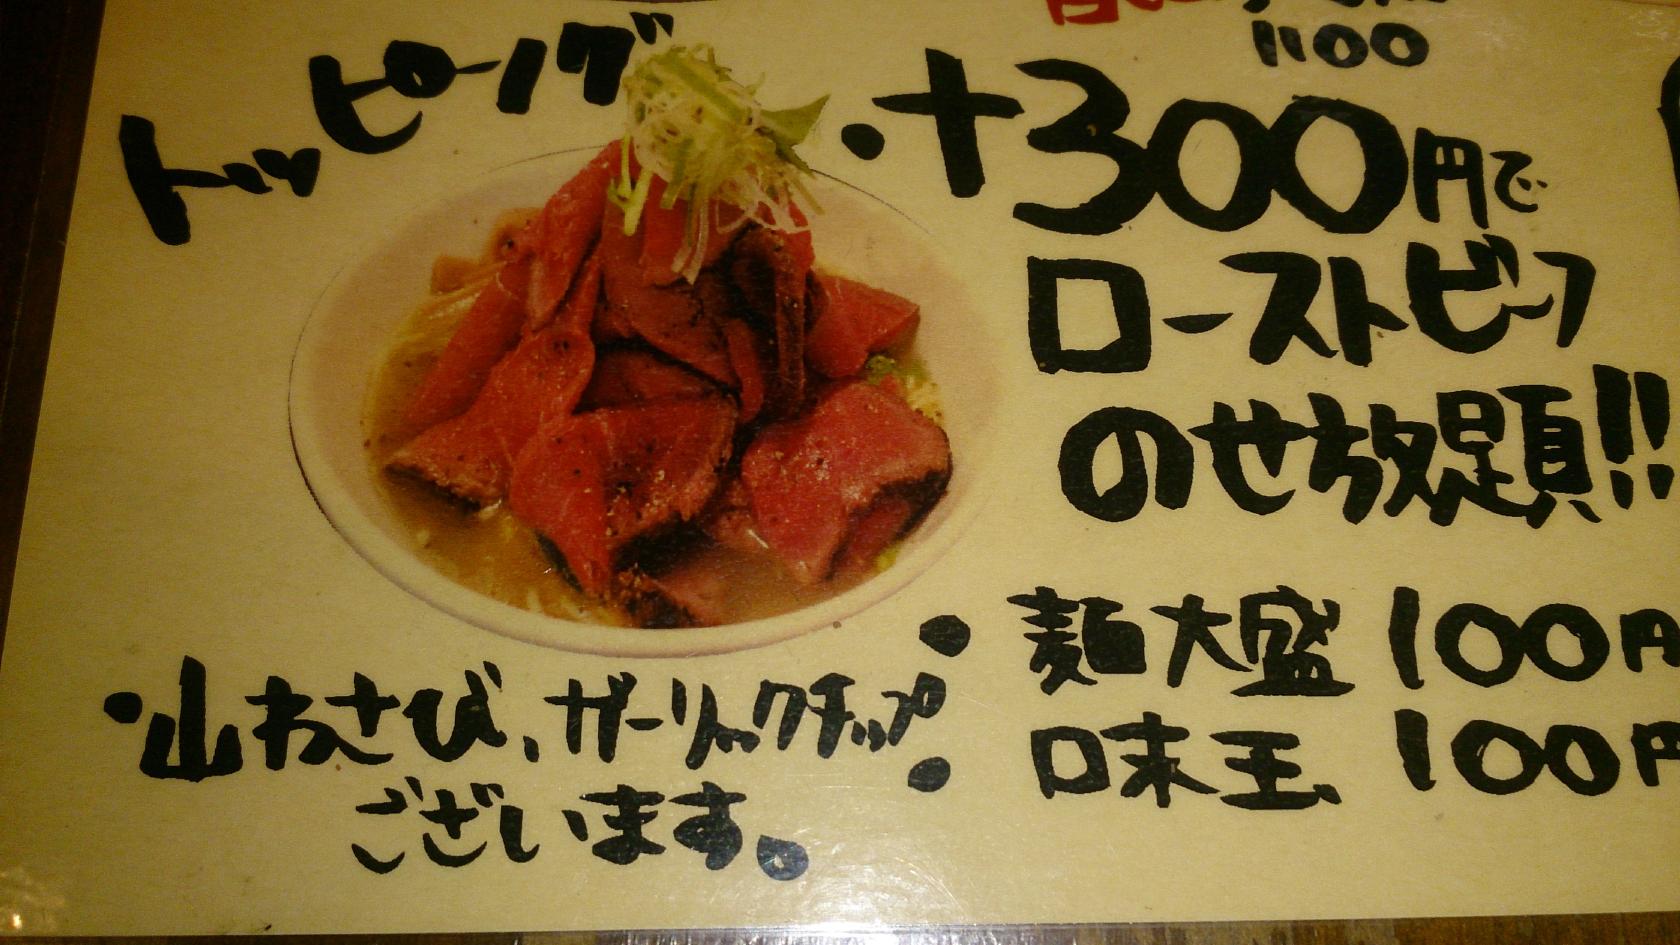 1100
トッピング
・+300円で
ローストビーフ
のせ放題!!
・麺大盛 100円
・味玉 100円
・山わさび、ガーリックチップ
ございます。